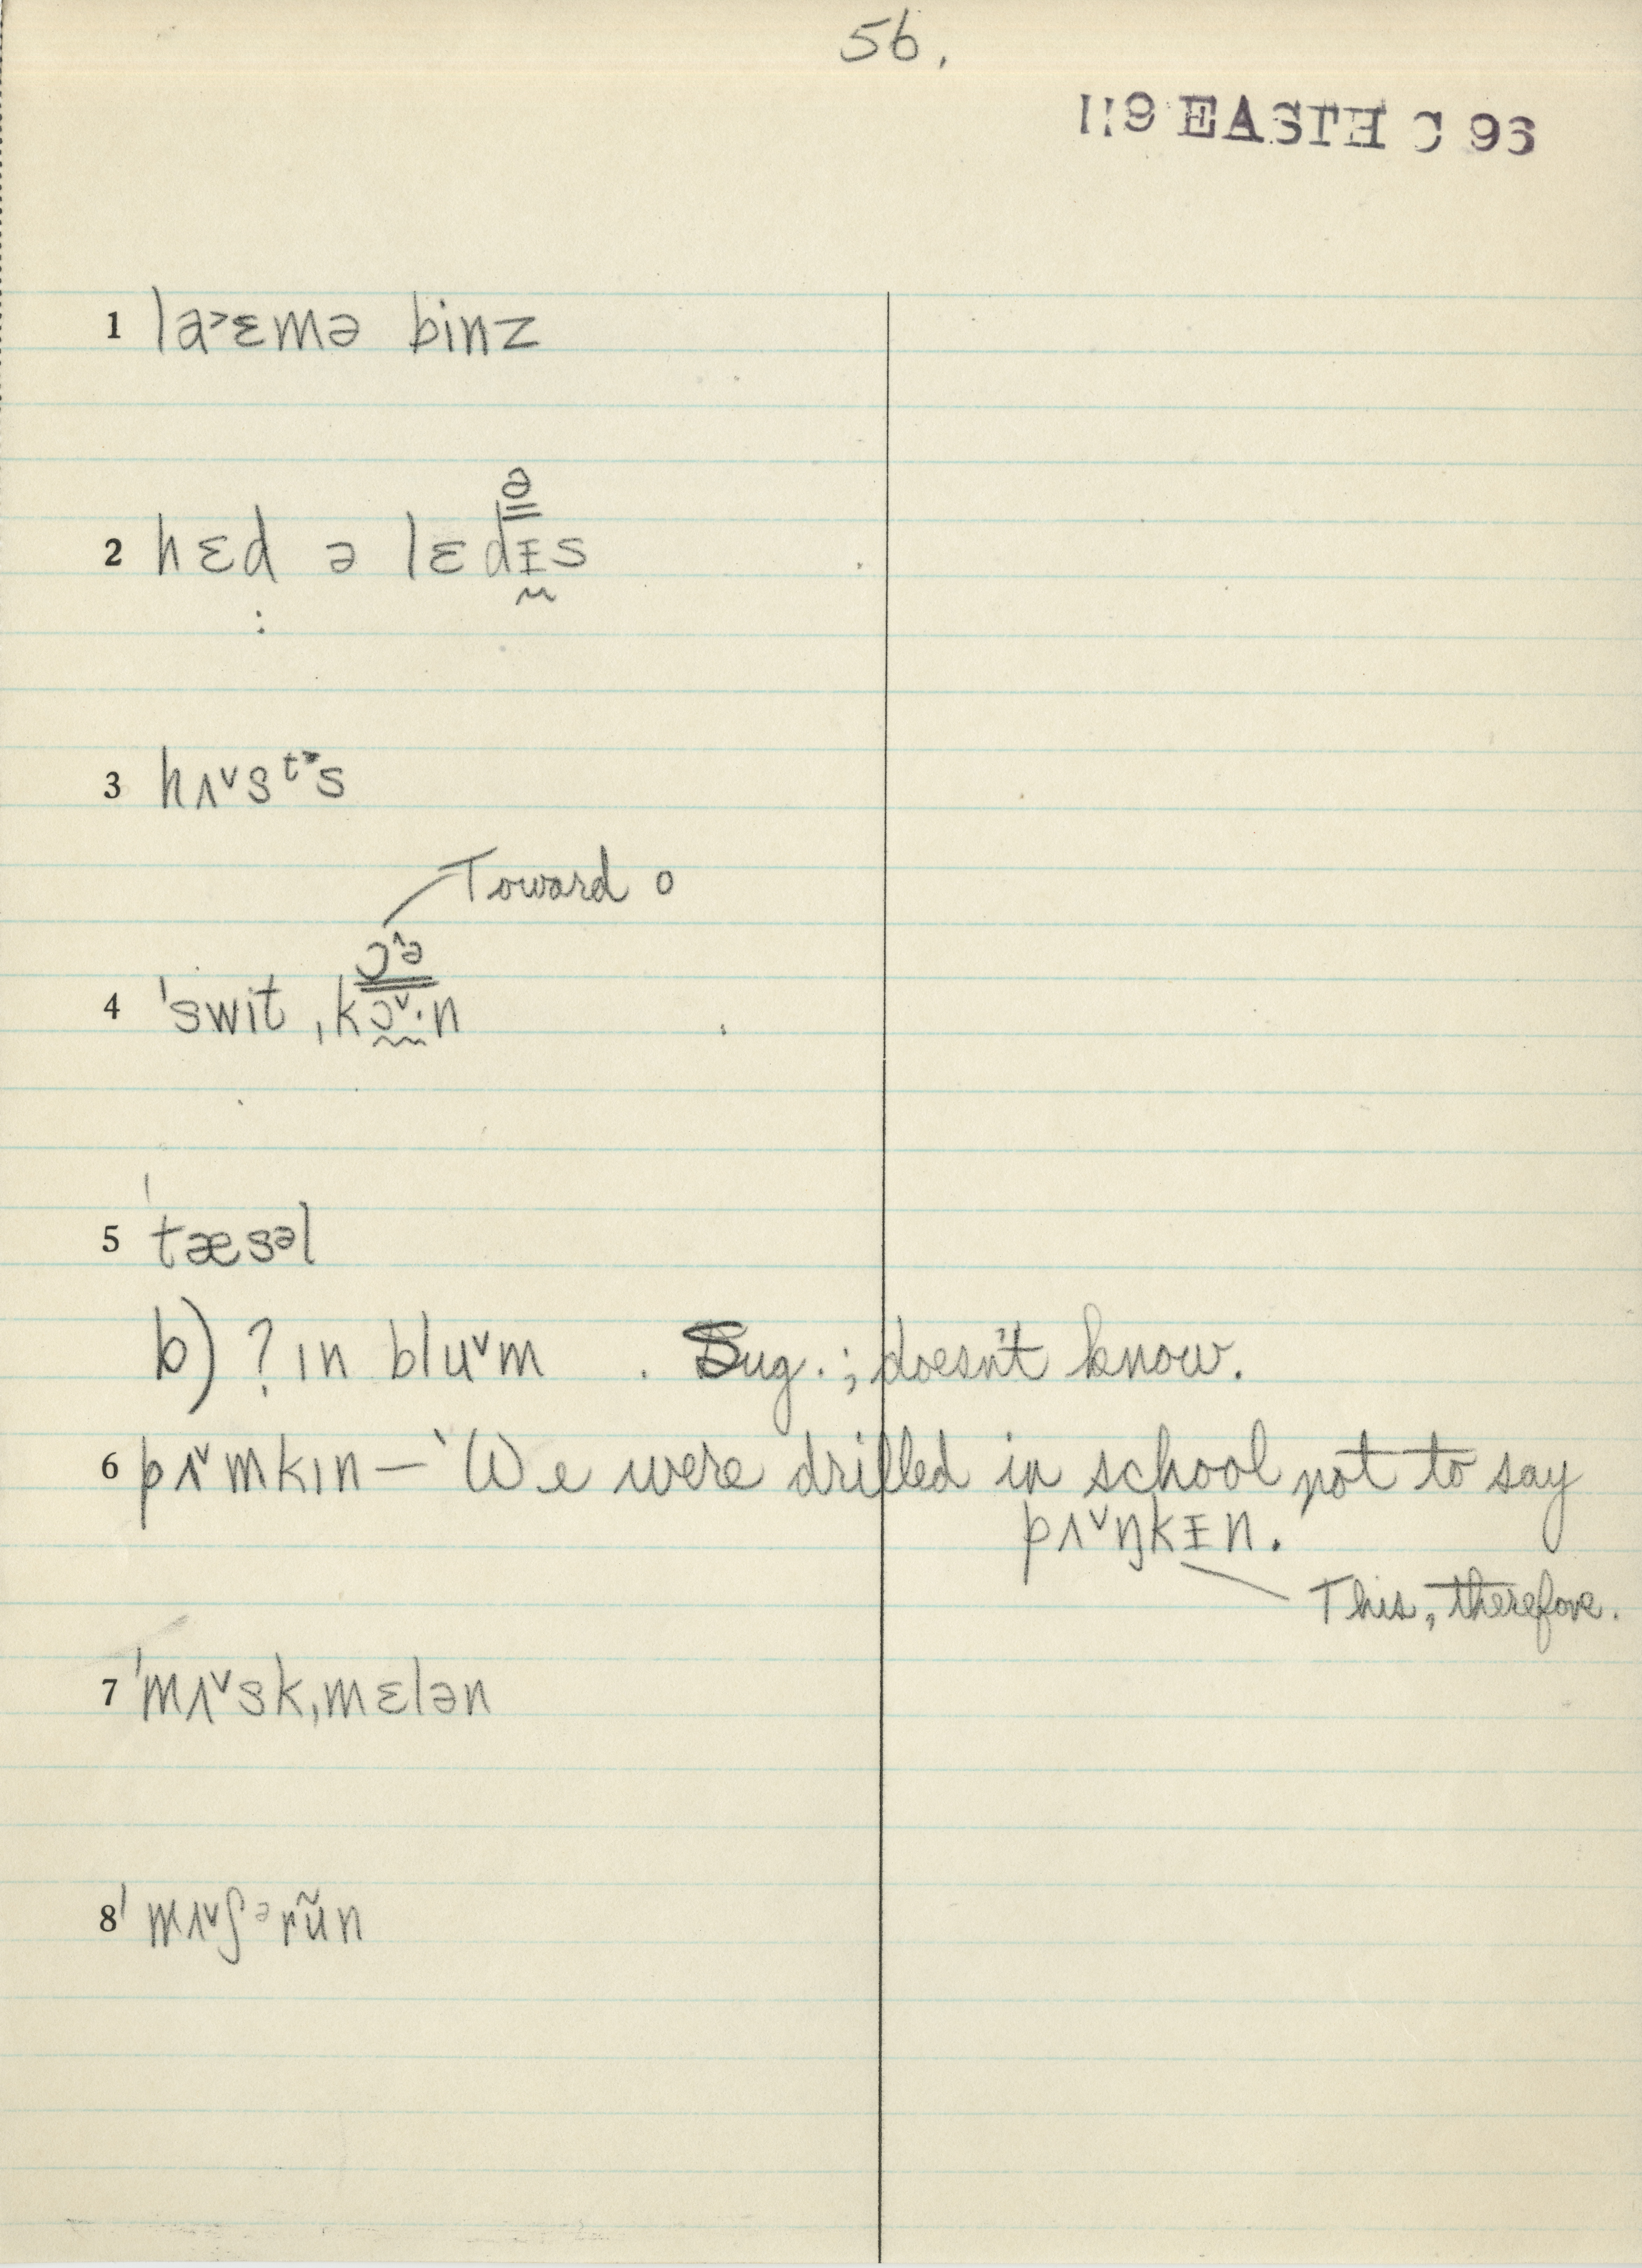 56.
119 EASTH C 96
1 la˃ɛmə binz
ə
2 hɛd ə lɛdᵻs
3 hʌ˅sᵗᵊs
Toward o
ɔ^ə
4 ˈswit ˌkɔ˅·n
5 ˈtæsᵊl
b) ? ɪn blu˅m . Sug.; doesn't know.
6 pʌ˅mkɪn — "We were drilled in school not to say
pʌ˅ŋkᵻn.
This, therefore.
7 ˈmʌ˅skˌmɛlən
8 ˈmʌ˅ʃᵊrũn